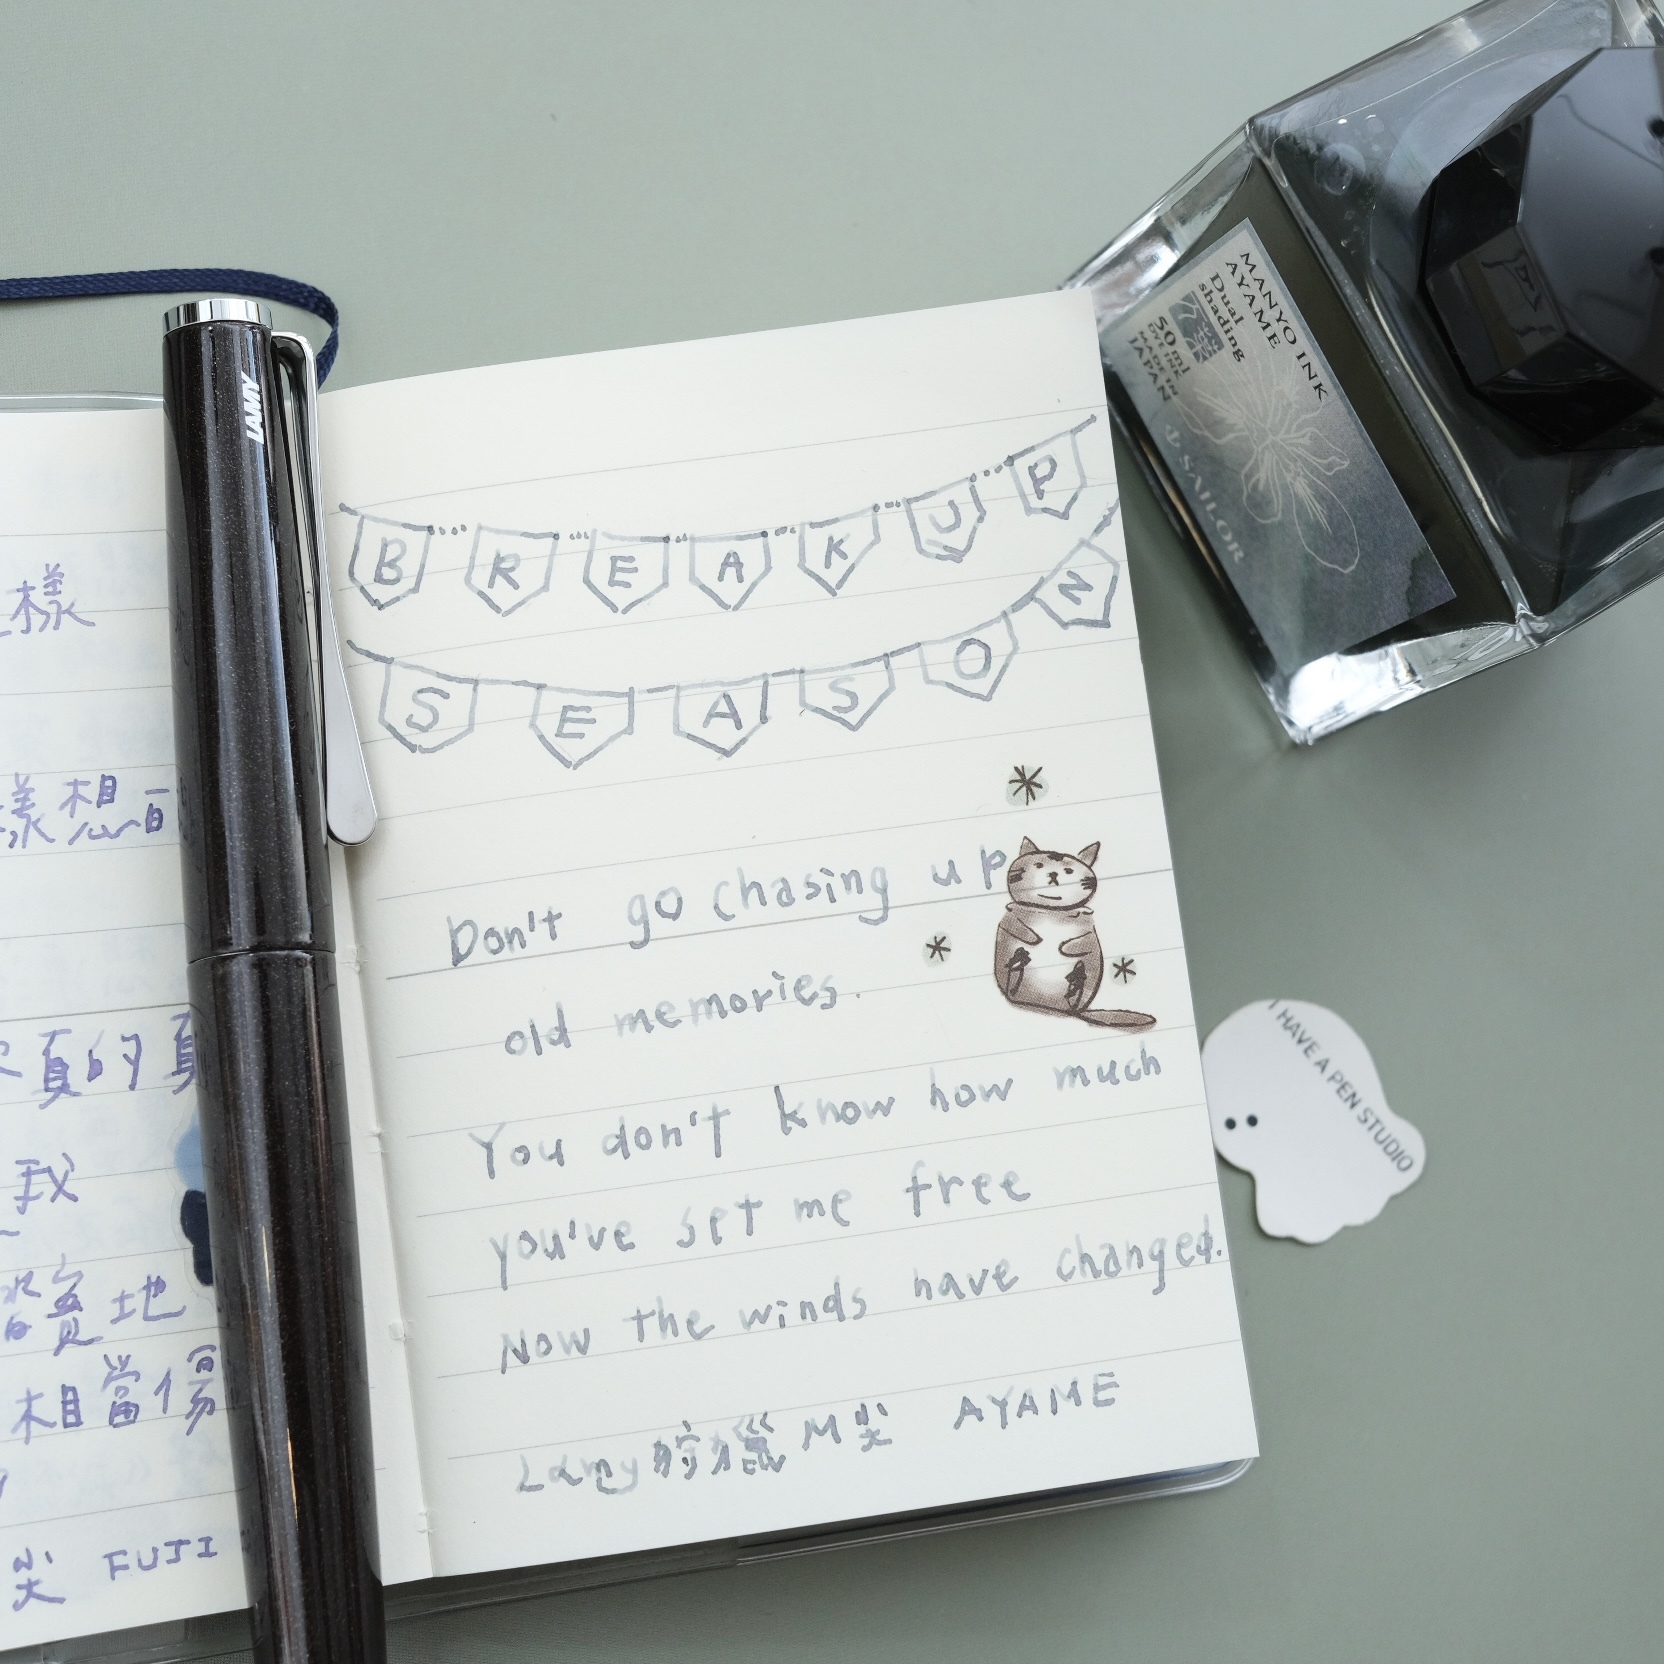 樣
樣想
真的真
我
踏實地
相當傷
尖 FUJI
LAMY
BREAKUP
SEASON
Don't go chasing up
old memories.
You don't know how much
you've set me free
Now the winds have changed.
Lamy狩獵 M尖 AYAME
MANYO INK
AYAME
Dual
shading
50 ml
DYE INK
MADE IN
JAPAN
SAILOR
I HAVE A PEN STUDIO